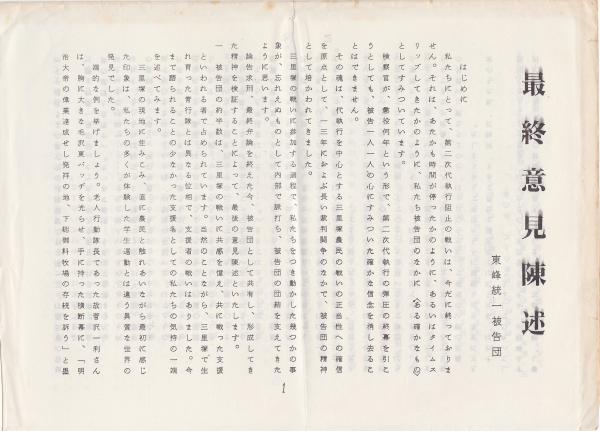 最終意見陳述
東峰統一被告団
はじめに
私たちにとって、第二次代執行阻止の戦いは、今だに終っておりま
せん。それは、あたかも時間が停ったかのように、あるいはタイムス
リップしてきたかのように、私たち被告団のなかに〈ある確かなもの〉
としてすみついています。
検察官が、懲役何年という形で、第二次代執行の弾圧の終幕を引こ
うとしても、被告一人一人の心にすみついた確かな信念を消し去るこ
とはできません。
その魂は、代執行を中心とする三里塚農民の戦いの正当性への確信
を原点として、一三年におよぶ長い裁判闘争のなかで、被告団の精神
として培かわれてきました。
三里塚の戦いに参加する過程で、私たちをつき動かした幾つかの事
象が、忘れえぬものとして内部で脈打ち、被告団の団結を支えてきた
ように思います。
論告求刑、最終弁論を終えた今、被告団として共有し、形成してき
た精神を検証することによって、最後の意見陳述といたします。
被告団の約半数は、三里塚の戦いに共感を憶え、共に戦った支援
といわれる者で占められています。当然のことながら、三里塚で生
れ育った青行隊とは異なる位相で、支援者の戦いはありました。今
まで語られることの少なかった支援名としての私たちの気持の一端
を述べてみます。
三里塚の現地に住みこみ、直に農民と触れあいながら最初に感じ
た印象は、私たちの多くが体験した学生運動とは違う異質な世界の
発見でした。
端的な例を挙げましょう。老人行動隊長であった故菅沢一利さん
は、胸に大きな毛沢東バッヂを光らせ、手に持った横断幕に、「明
治大帝の偉業達成せし発祥の地、下総御料牧場の存続を訴う」と墨
1